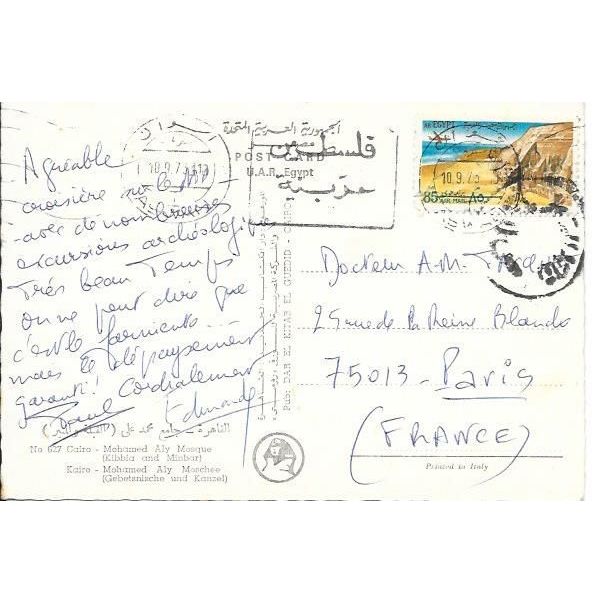 الجمهورية العربية المتحدة
POST CARD
U.A.R. Egypt
فلسطين
عربية
A.R. EGYPT
85
٨٥
AIR MAIL
10.9.7
10.9.7
Agréable
croisière sur le Nil
avec de nombreuses
excursions archéologiques
Très beau Temps
on ne peut dire que
c'est le farniente
mais le dépaysement
garanti!
Cordialement
Edmonde
Docteur A-M-
25 rue de la Reine Blanche
75013 - Paris
(FRANCE)
Pub: DAR EL KITAB EL GUEDID -
القاهرة - جامع محمد على (القبلة والمنبر)
No 627 Cairo - Mohamed Aly Mosque
(Kibbla and Minbar)
Kairo - Mohamed Aly Moschee
(Gebetsnische und Kanzel)
Printed in Italy